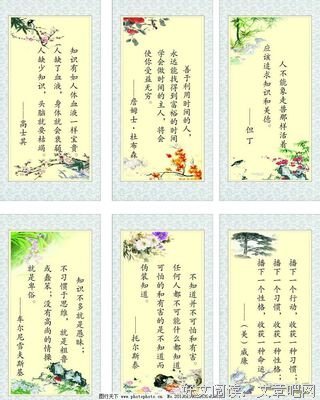 知识有如人体血液一样宝贵
人缺了血液，身体就会衰弱
人缺少知识，头脑就要枯竭
——高士其
善于利用时间的人，
永远能找得到富裕的时间
学会做时间的主人，将会
使你受益无穷。
——詹姆士·杜布森
人不能象走兽那样活着
应该追求知识和美德。
——但丁
知识不多就是愚昧；
不习惯于思维，就是粗鲁
或蠢笨；没有高尚的情操
就是卑俗
——车尔尼雪夫斯基
不知道并不可怕和有害
任何人都不可能什么都知道
可怕的和有害的是不知道而
伪装知道。
——托尔斯泰
播下一个行动，收获一种习惯；
播下一种习惯，收获一种性格；
播下一个性格，收获一种命运
——（美）威廉